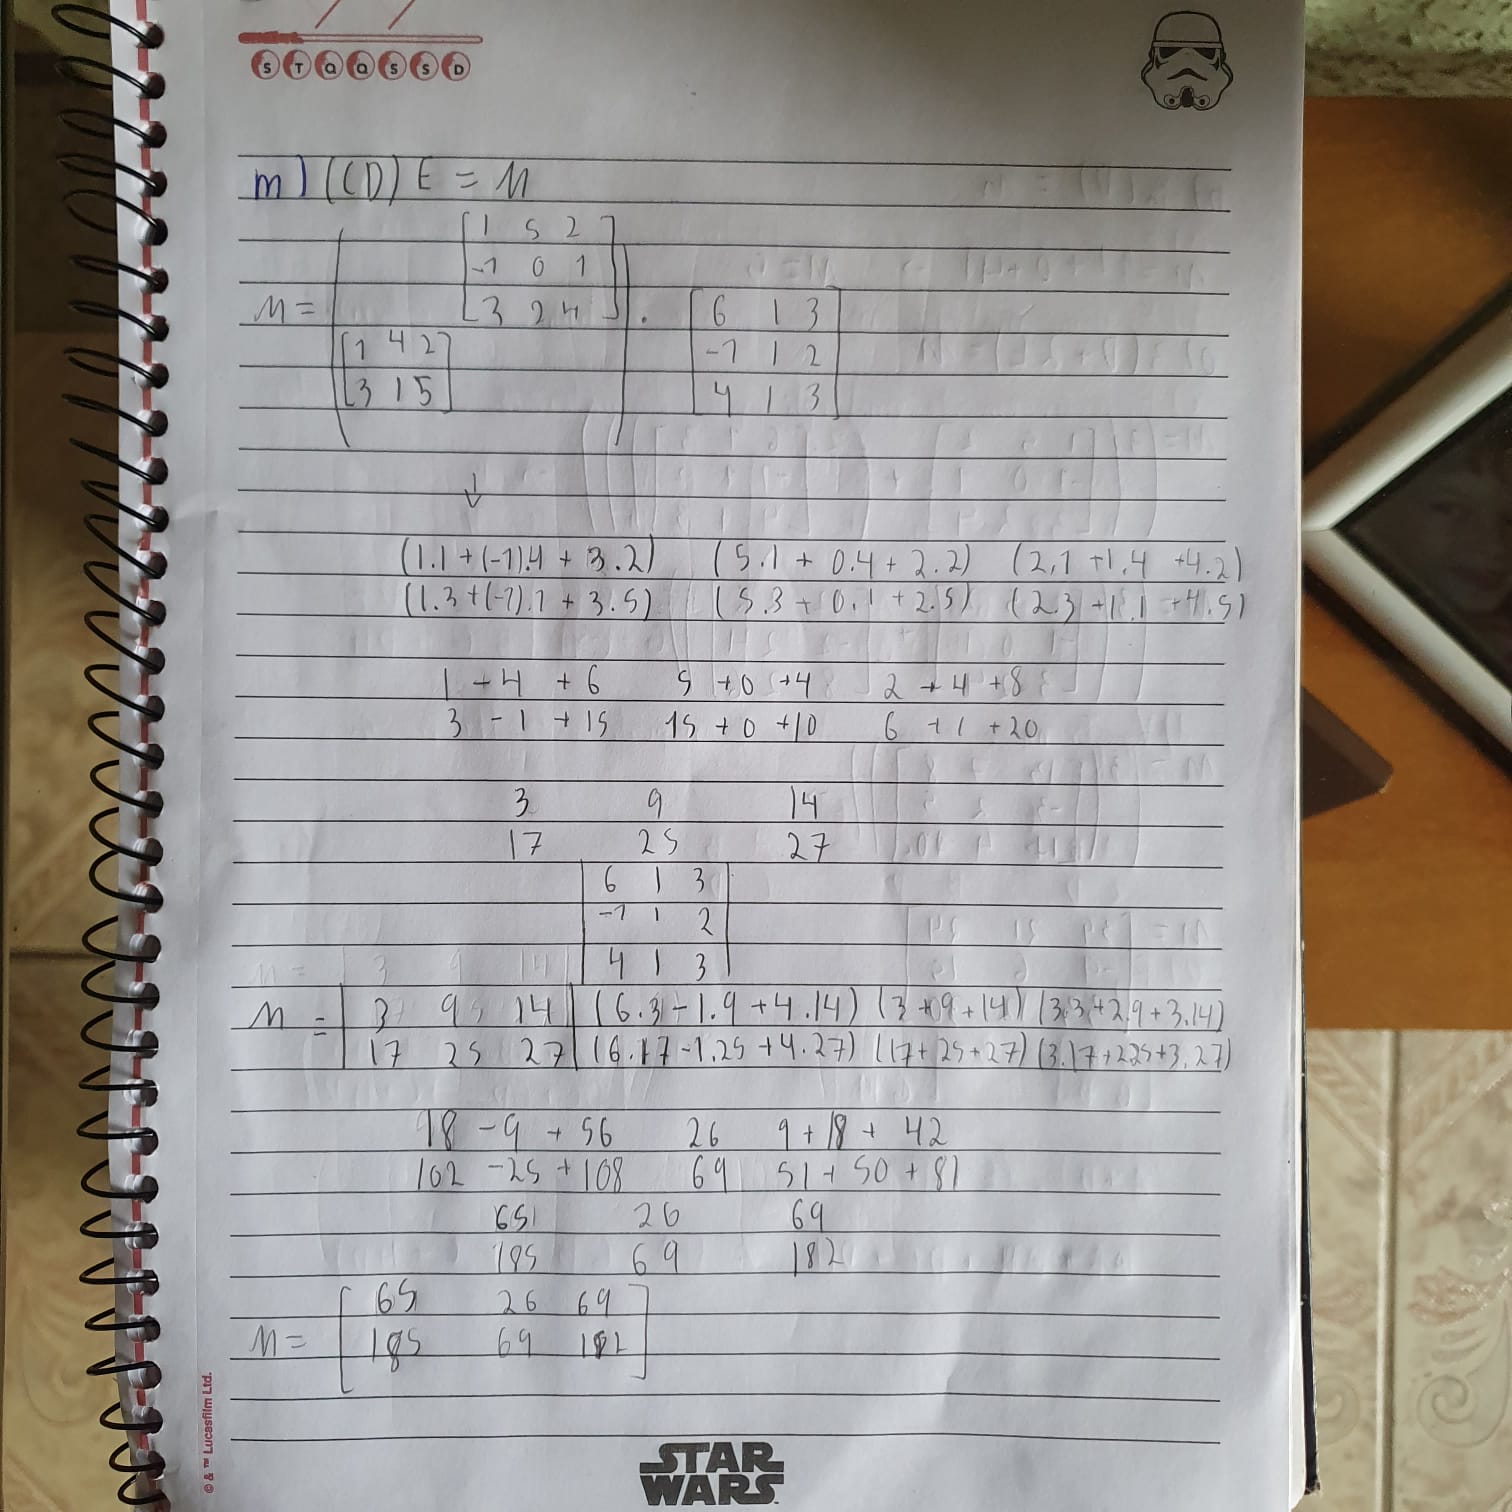 S T Q Q S S D
m) (CD) E = M
1 5 2
-1 0 1
M = 3 2 4 . 6 1 3
1 4 2 -1 1 2
3 1 5 4 1 3
↓
(1.1+(-1).4 + 3.2) (5.1 + 0.4 + 2.2) (2.1 +1.4 +4.2)
(1.3+(-1).1 + 3.5) (5.3 + 0.1 + 2.5) (2.3 +1.1 +4.5)
1 -4 +6 5 +0 +4 2 +4 +8
3 -1 +15 15 +0 +10 6 +1 +20
3 9 14
17 25 27
6 1 3
-1 1 2
4 1 3
M = 3 9 14 (6.3-1.9+4.14) (3+9+14) (3.3+2.9+3.14)
17 25 27 (6.17-1.25+4.27) (17+25+27) (3.17+225+3.27)
18 -9 +56 26 9+18+ 42
102 -25 +108 69 51+ 50 +81
65 26 69
185 69 182
65 26 69
M = 185 69 182
© & ™ Lucasfilm Ltd.
STAR
WARS